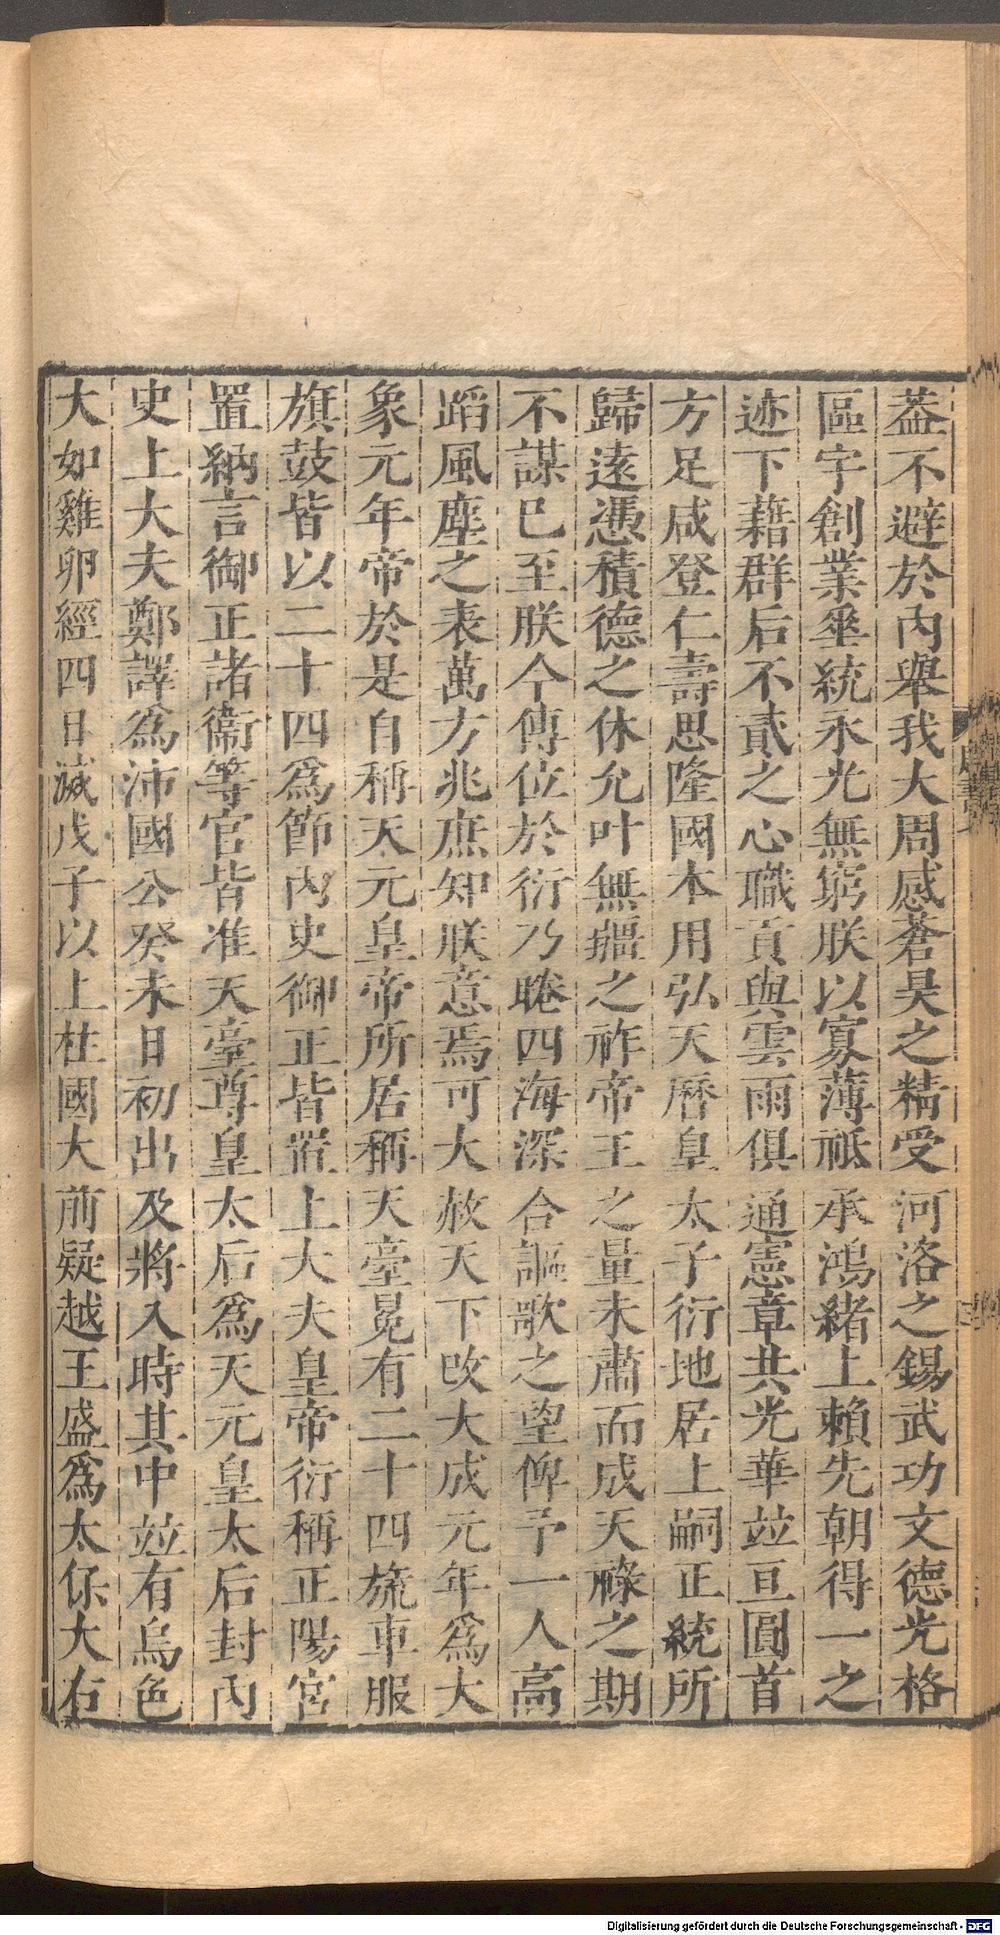 葢不避於內舉我大周感蒼昊之精受河洛之錫武功文德光格
區宇創業垂統永光無窮朕以寡薄祗承鴻緒上賴先朝得一之
迹下藉群后不貳之心職貢與雲雨俱通憲章共光華竝亘圓首
方足咸登仁壽思隆國本用弘天曆皇太子衍地居上嗣正統所
歸遠憑積德之休允叶無疆之祚帝王之量未肅而成天祿之期
不謀巳至朕今傳位於衍乃睠四海深合謳歌之望俾予一人高
蹈風塵之表萬方兆庶知朕意焉可大赦天下改大成元年爲大
象元年帝於是自稱天元皇帝所居稱天臺冕有二十四旒車服
旗鼓皆以二十四爲節內史御正皆置上大夫皇帝衍稱正陽宮
置納言御正諸衞等官皆准天臺尊皇太后爲天元皇太后封內
史上大夫鄭譯爲沛國公癸未日初出及將入時其中竝有烏色
大如雞卵經四日滅戊子以上柱國大前疑越王盛爲太保大右
Digitalisierung gefördert durch die Deutsche Forschungsgemeinschaft - DFG